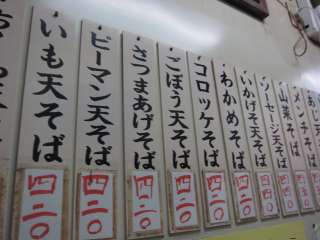 いも天そば
四二〇
ピーマン天そば
四二〇
さつまあげそば
四二〇
ごぼう天そば
四二〇
コロッケそば
四二〇
わかめそば
四二〇
いかげそ天そば
四二〇
ソーセージ天そば
四二〇
山菜そば
メンチ
あじ天